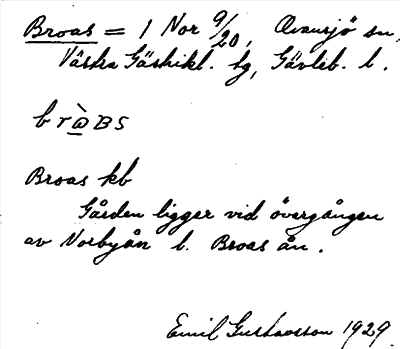 Broas = 1 Nor 9/20, Ovansjö sn,
Västra Gästrikl. tg, Gävleb. l.
bròBS
Broas kb
Gården ligger vid övergången
av Norbyån l. Broas ån.
Emil Gustavsson 1929